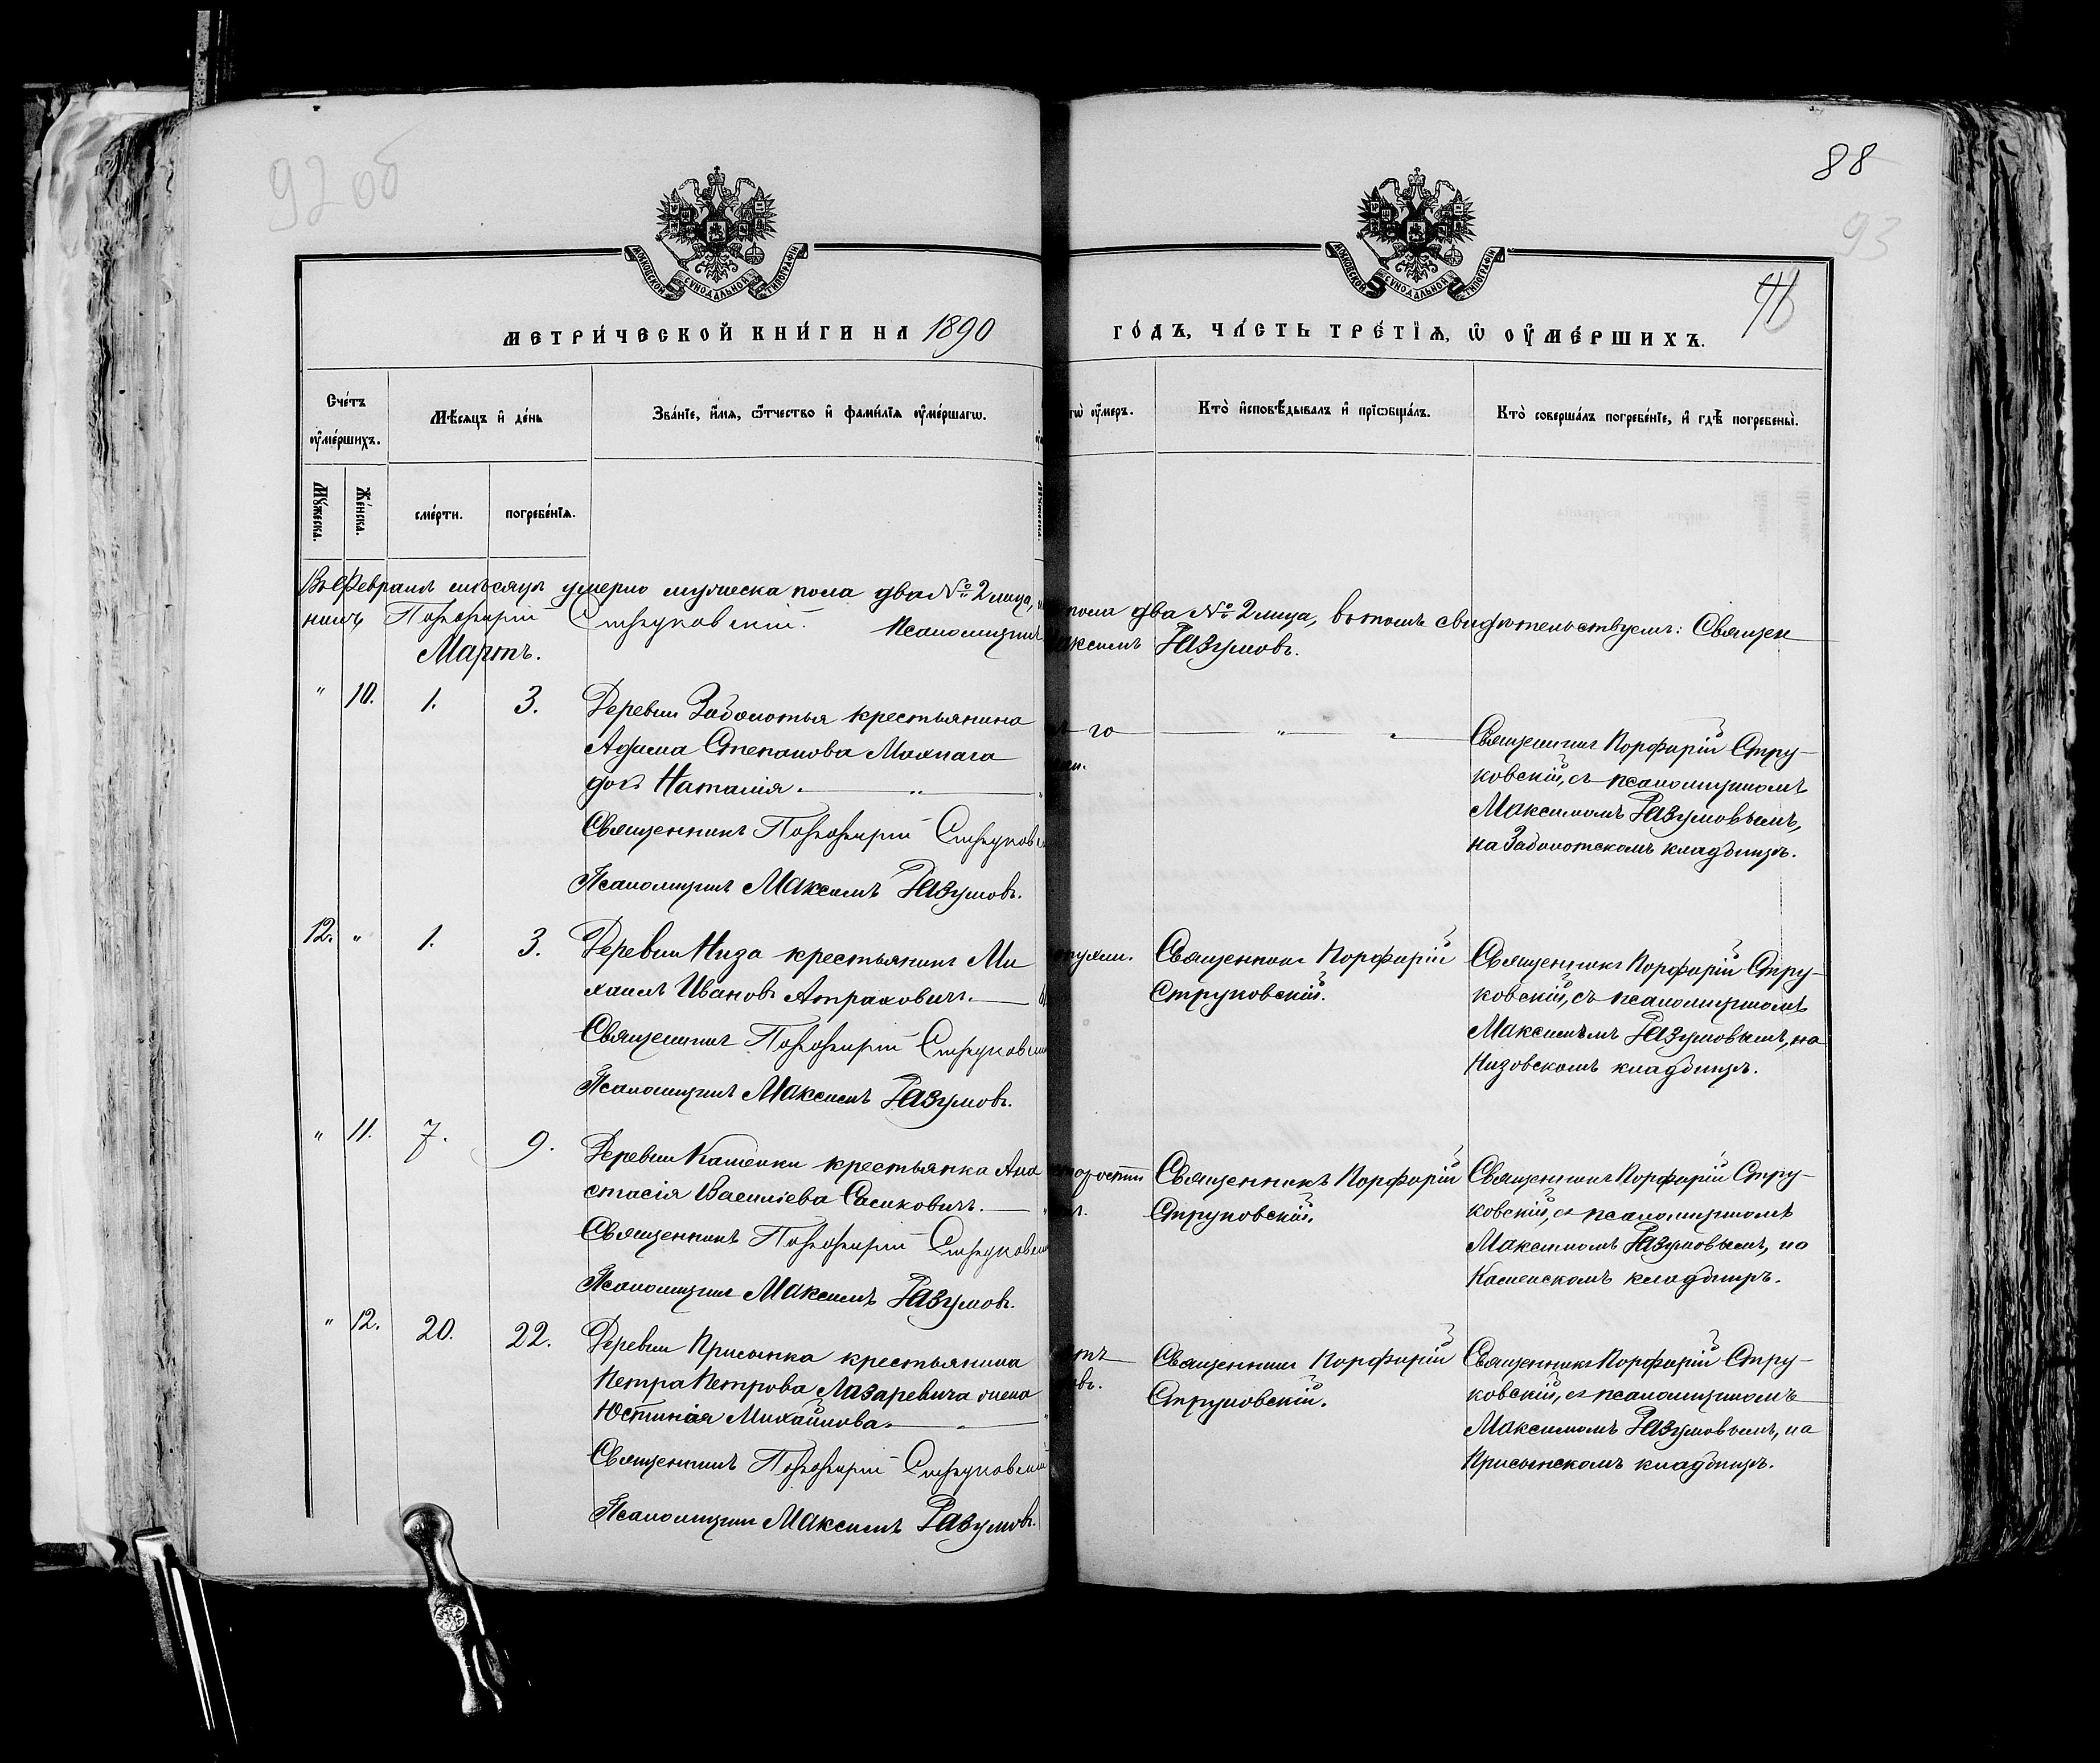 92 об
88
93
МОСКОВСКОЙ СѴНОДАЛЬНОЙ ТИПОГРАФІИ
МОСКОВСКОЙ СѴНОДАЛЬНОЙ ТИПОГРАФІИ
МЕТРИ́ЧЕСКОЙ КНИ́ГИ НА 1890
ГО́ДЪ, ЧА́СТЬ ТРЕ́ТІѦ, Ѡ҆ ОУ҆МЕ́РШИХЪ.
Сче́тъ оу҆ме́ршихъ.
Мѣ́сѧцъ и҆ де́нь
Зва́нїе, и҆́мѧ, ѻ҆́тчество и҆ фами́лїѧ оу҆ме́ршагѡ.
гѡ̀ оу҆́меръ.
Кто̀ и҆сповѣ́дывалъ и҆ прїѡбща́лъ.
Кто̀ соверша́лъ погребе́нїе, и҆ гдѣ̀ погребены̀.
Мꙋ́жеска.
Же́нска.
сме́рти.
погребе́нїѧ.
Въ Февралѣ мѣсяцѣ умерло мужеска пола два № 2 лица,
пола два № 2 лица, въ томъ свидѣтельствуемъ: Священ
никъ Порфирій Струковскій. Псаломщикъ
Максимъ Разумовъ.
Мартъ.
" 10. 1. 3. Деревни Заболотья крестьянина
Адама Степанова Махнача
дочь Наталія. "
Священникъ Порфирій Струковск
Псаломщикъ Максимъ Разумовъ.
го " "
Священникъ Порфирій Стру-
ковскій, съ псаломщикомъ
Максимомъ Разумовымъ,
на Заболотскомъ кладбищѣ.
12. " 1. 3. Деревни Низа крестьянинъ Ми
хаилъ Ивановъ Атрахович.
Священникъ Порфирій Струковскі
Псаломщикъ Максимъ Разумовъ.
Священникъ Порфирій
Струковскій.
Священникъ Порфирій Стру-
ковскій, съ псаломщикомъ
Максимъмъ Разумовымъ, на
Низовскомъ кладбищѣ.
" 11. 7. 9. Деревни Каменки крестьянка Ана
стасія Василіева Сасикович.
Священникъ Порфирій Струковскі
Псаломщикъ Максимъ Разумовъ.
старости
Священникъ Порфирій
Струковскій.
Священникъ Порфирій Стру-
ковскій, съ псаломщикомъ
Максимомъ Разумовымъ, на
Каменскомъ кладбищѣ.
" 12. 20. 22. Деревни Присынка крестьянина
Петра Петрова Лазаревича жена
Юстинія Михайлова.
Священникъ Порфирій Струковскій
Псаломщикъ Максимъ Разумовъ.
Священникъ Порфирій
Струковскій.
Священникъ Порфирій Стру-
ковскій, съ псаломщикомъ
Максимомъ Разумовымъ, на
Присынскомъ кладбищѣ.